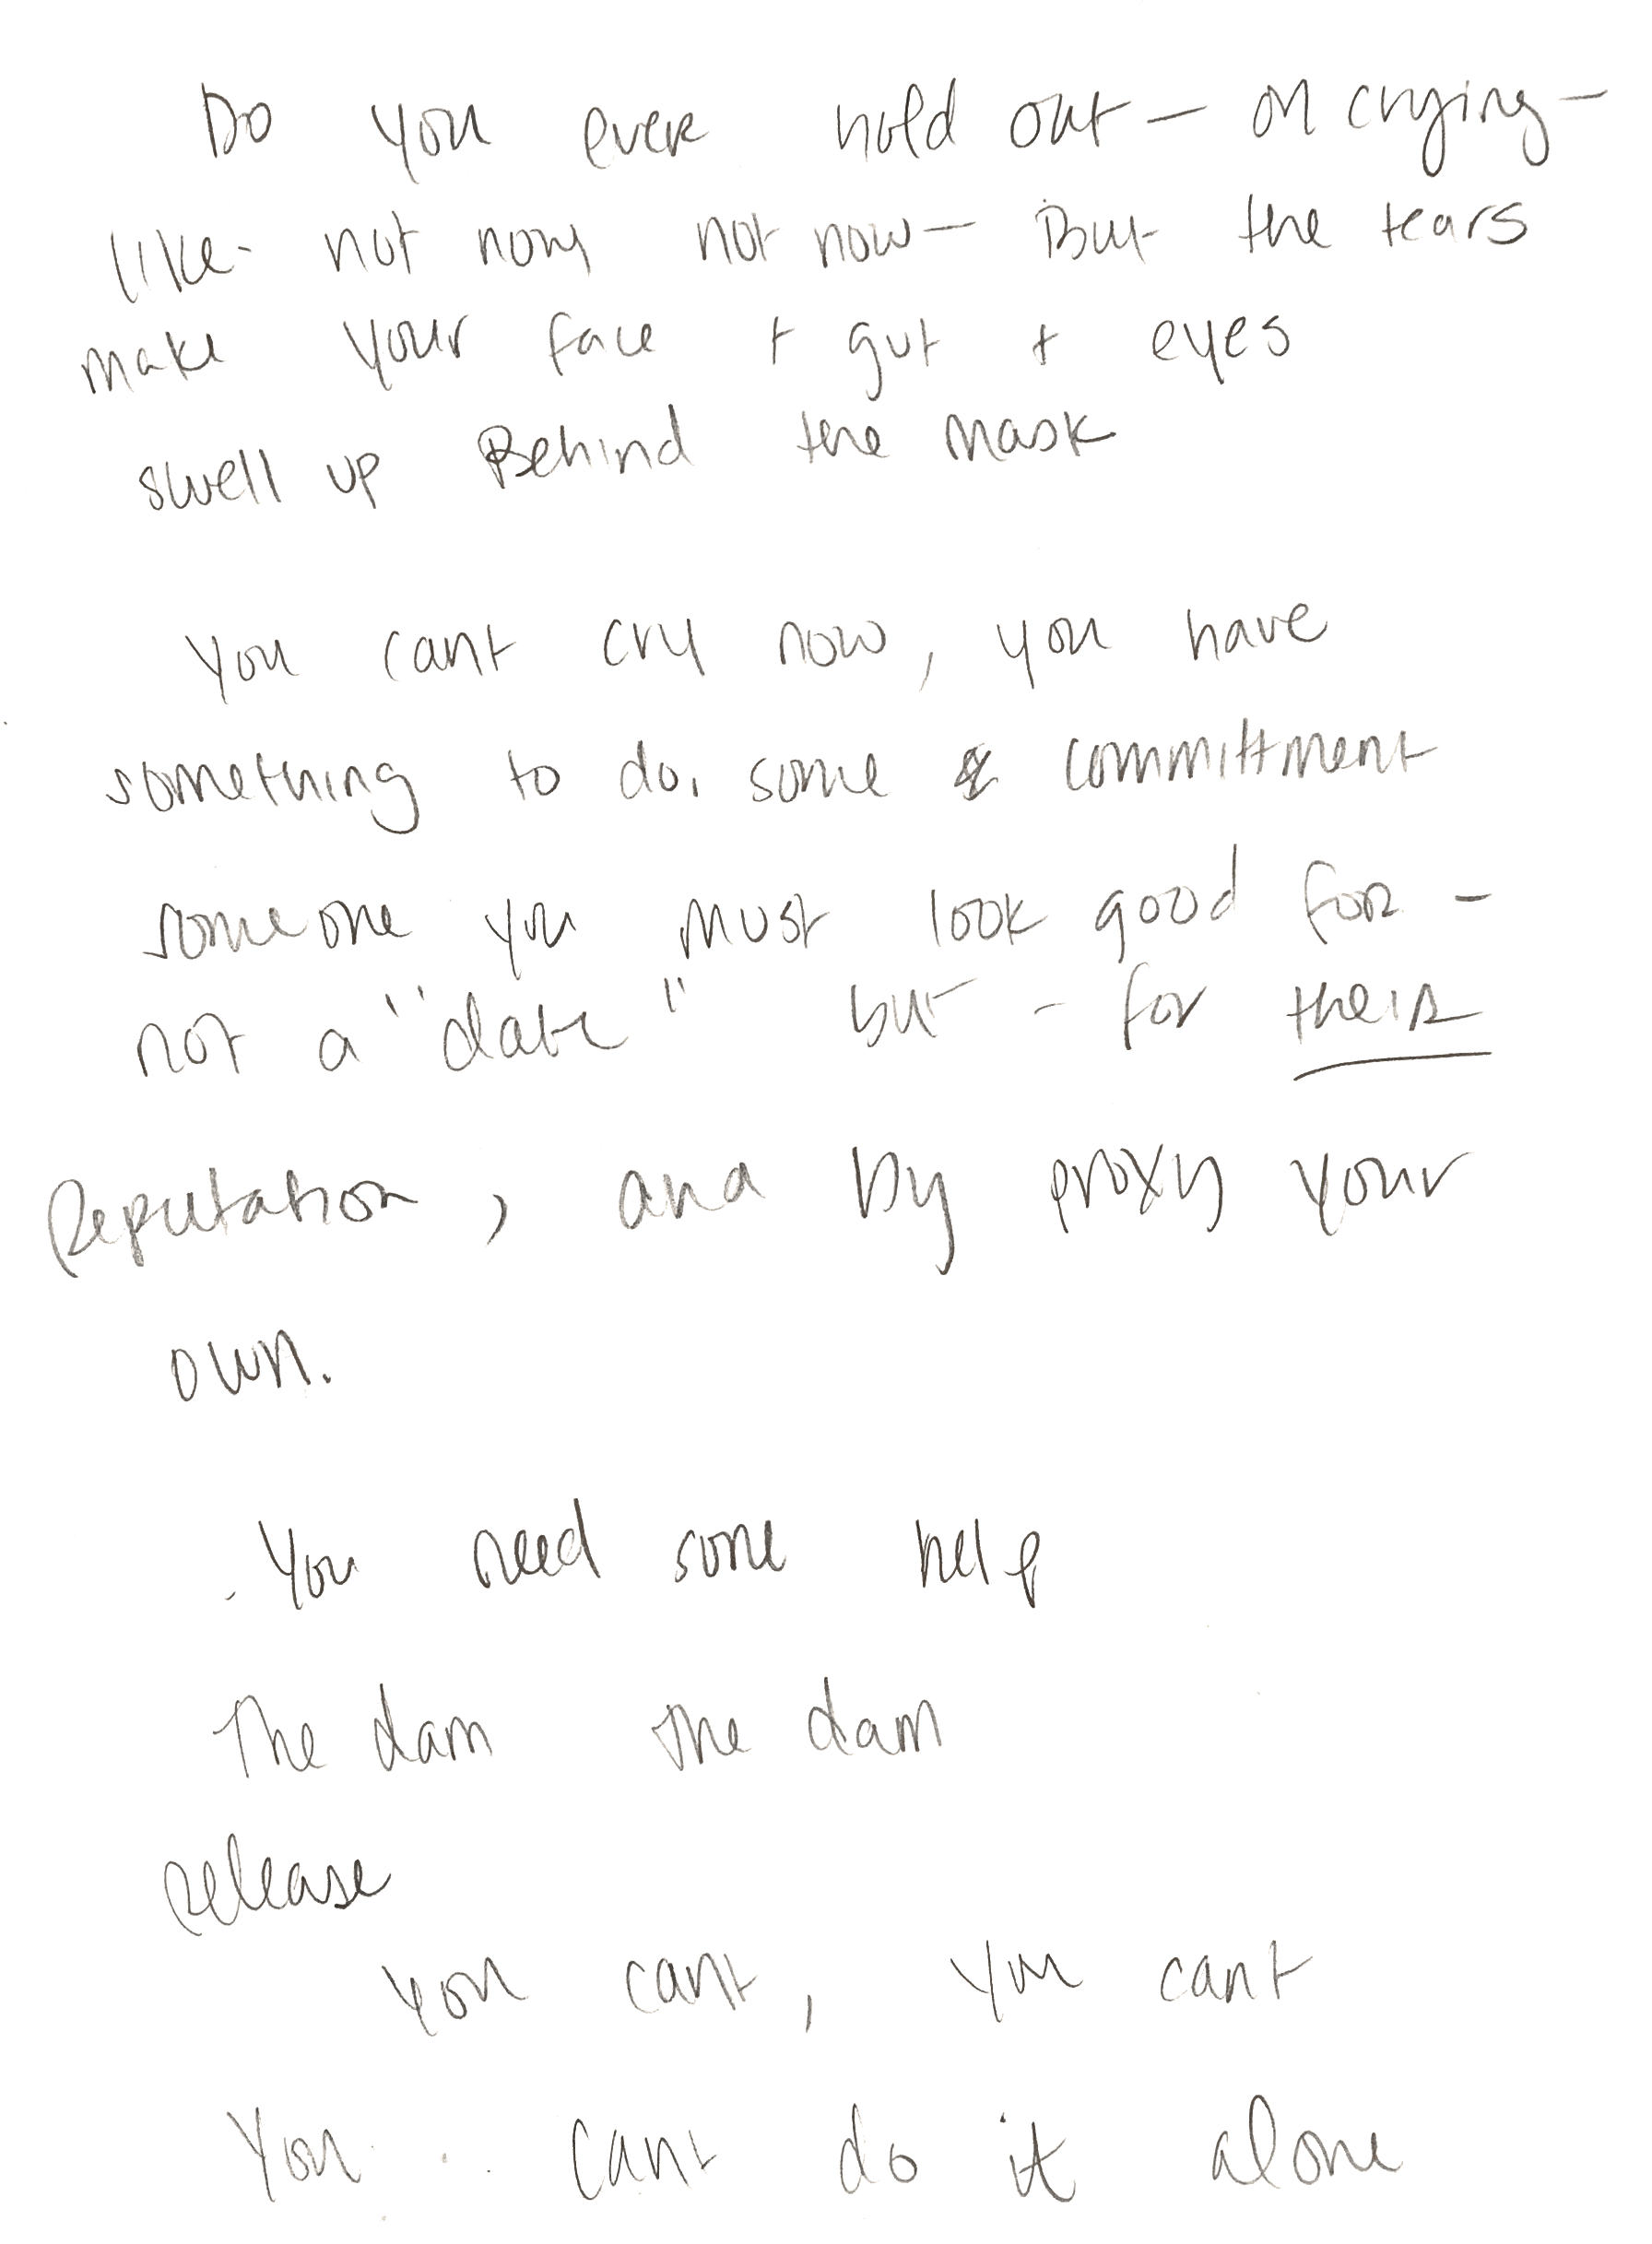 Do you ever hold out — on crying —
like - not now not now — But the tears
make your face + gut + eyes
swell up Behind the mask
You cant cry now, you have
something to do. some committment
someone you must look good for -
not a "date" but - for their
Reputation, and by proxy your
own.
You need some help
The dam the dam
release
You cant, you cant
You cant do it alone